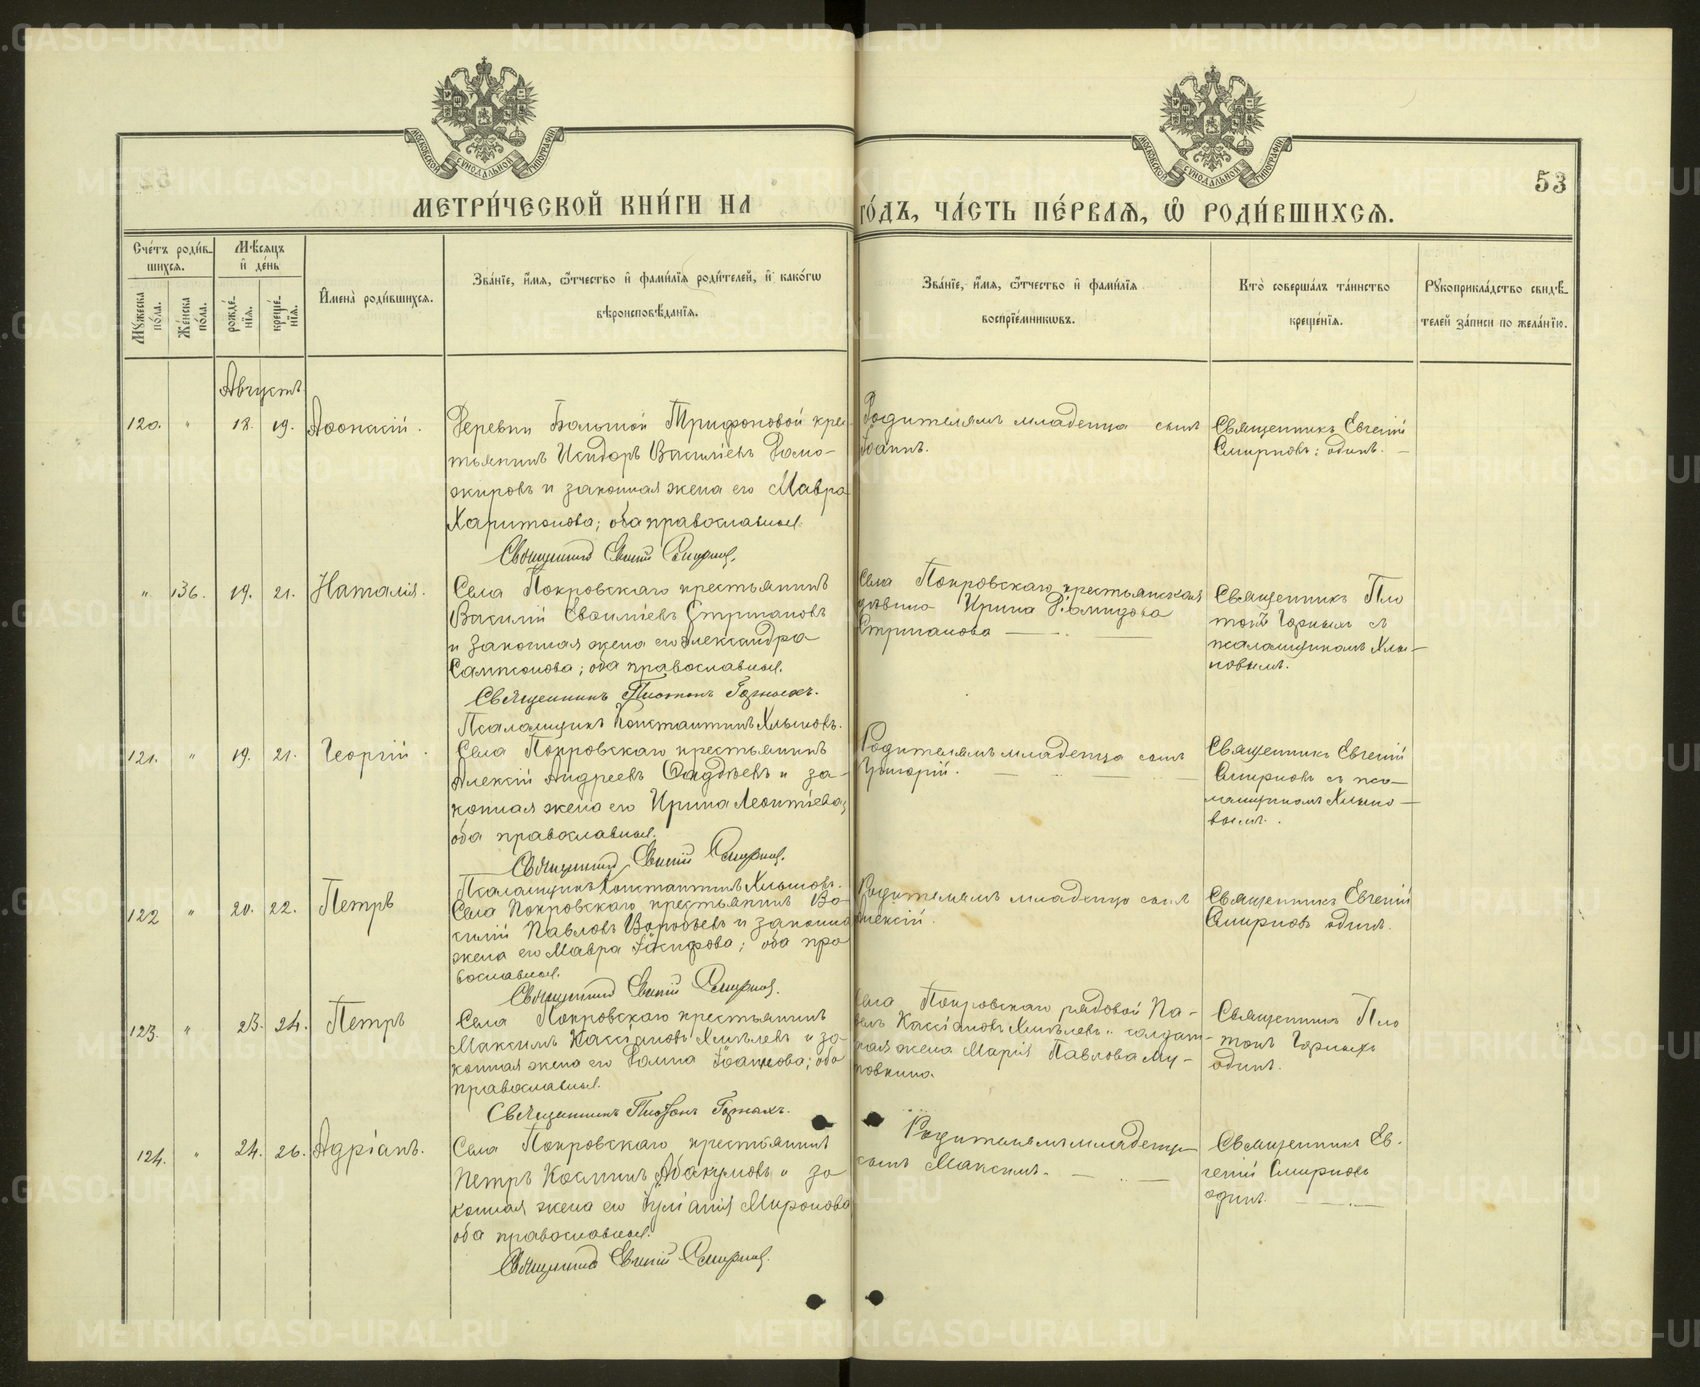 МЕТРИ́ЧЕСКОЙ КНИ́ГИ НА ГО́ДЪ, ЧА́СТЬ ПЕ́РВАЯ, Ѽ РОДИ́ВШИХСЯ.
53
МОСКОВСКОЙ СѴНОДАЛЬНОЙ ТИПОГРАФІИ
МОСКОВСКОЙ СѴНОДАЛЬНОЙ ТИПОГРАФІИ
Сче́тъ роди́в-
шихся.
Мѣ́сяцъ
и҆ де́нь
Мꙋ́жеска по́ла.
Же́нска по́ла.
рожде́-нїѧ.
креще́-нїѧ.
И҆мена̀ роди́вшихся.
Зва́нїе, и҆́мя, ѻ҆́тчество и҆ фами́лїя роди́телей, и҆ како́гѡ
вѣроисповѣ́данїя.
Зва́нїе, и҆́мя, ѻ҆́тчество и҆ фами́лїя
воспрїе́мникѡвъ.
Кто̀ соверша́лъ та́инство
креще́нїя.
Рꙋкоприкла́дство свидѣ́-
телей за́писи по жела́нїю.
Августъ.
120. " 18. 19. Аѳонасій.
Деревни Большой Трифоновой кре-
стьянинъ Исидоръ Василіевъ
и законная жена его Мавра
Харитонова; оба православные.
Священникъ Евгеній Смирновъ.
Родителямъ младенца сынъ
Іоаннъ.
Священникъ Евгеній
Смирновъ: одинъ.
" 136. 19. 21. Наталія.
Села Покровскаго крестьянинъ
Василій Стригановъ
и законная жена его Александра
Сампсонова; оба православные.
Священникъ Платонъ Горныхъ.
Псаломщикъ Константинъ Хлыновъ.
Села Покровскаго крестьянская
дѣвица Ирина
Стриганова
Священникъ Пла
тонъ Горныхъ съ
псаломщикомъ Хлы-
новымъ.
121. " 19. 21. Георгій.
Села Покровскаго крестьянинъ
Алексій Андреевъ и за-
конная жена его Ирина Леонтіева;
оба православные.
Священникъ Евгеній Смирновъ.
Псаломщикъ Константинъ Хлыновъ.
Родителямъ младенца сынъ
Григорій.
Священникъ Евгеній
Смирновъ съ пса-
ломщикомъ Хлыно-
вымъ.
122 " 20. 22. Петръ
Села Покровскаго крестьянинъ Ва-
силій Павловъ Воробьевъ и законная
жена его Мавра Іосифова; оба пра
вославные.
Священникъ Евгеній Смирновъ.
Родителямъ младенца сынъ
Алексій.
Священникъ Евгеній
Смирновъ одинъ.
123. " 23. 24. Петръ
Села Покровскаго крестьянинъ
Максимъ Кассіановъ Хмѣлевъ и за-
конная жена его Іоаннова; оба
православные.
Священникъ Платонъ Горныхъ.
Села Покровскаго рядовой Па-
велъ Кассіановъ Хмѣлевъ и солдат-
ская жена Марія Павлова
Священникъ Пла
тонъ Горныхъ
одинъ.
124. " 24. 26. Адріанъ.
Села Покровскаго крестьянинъ
Петръ Косминъ Абакумовъ и за-
конная жена его Іуліанія Миронова
оба православные.
Священникъ Евгеній Смирновъ.
Родителямъ младенца
сынъ Максимъ.
Священникъ Ев-
геній Смирновъ
одинъ.
METRIKI.GASO-URAL.RU